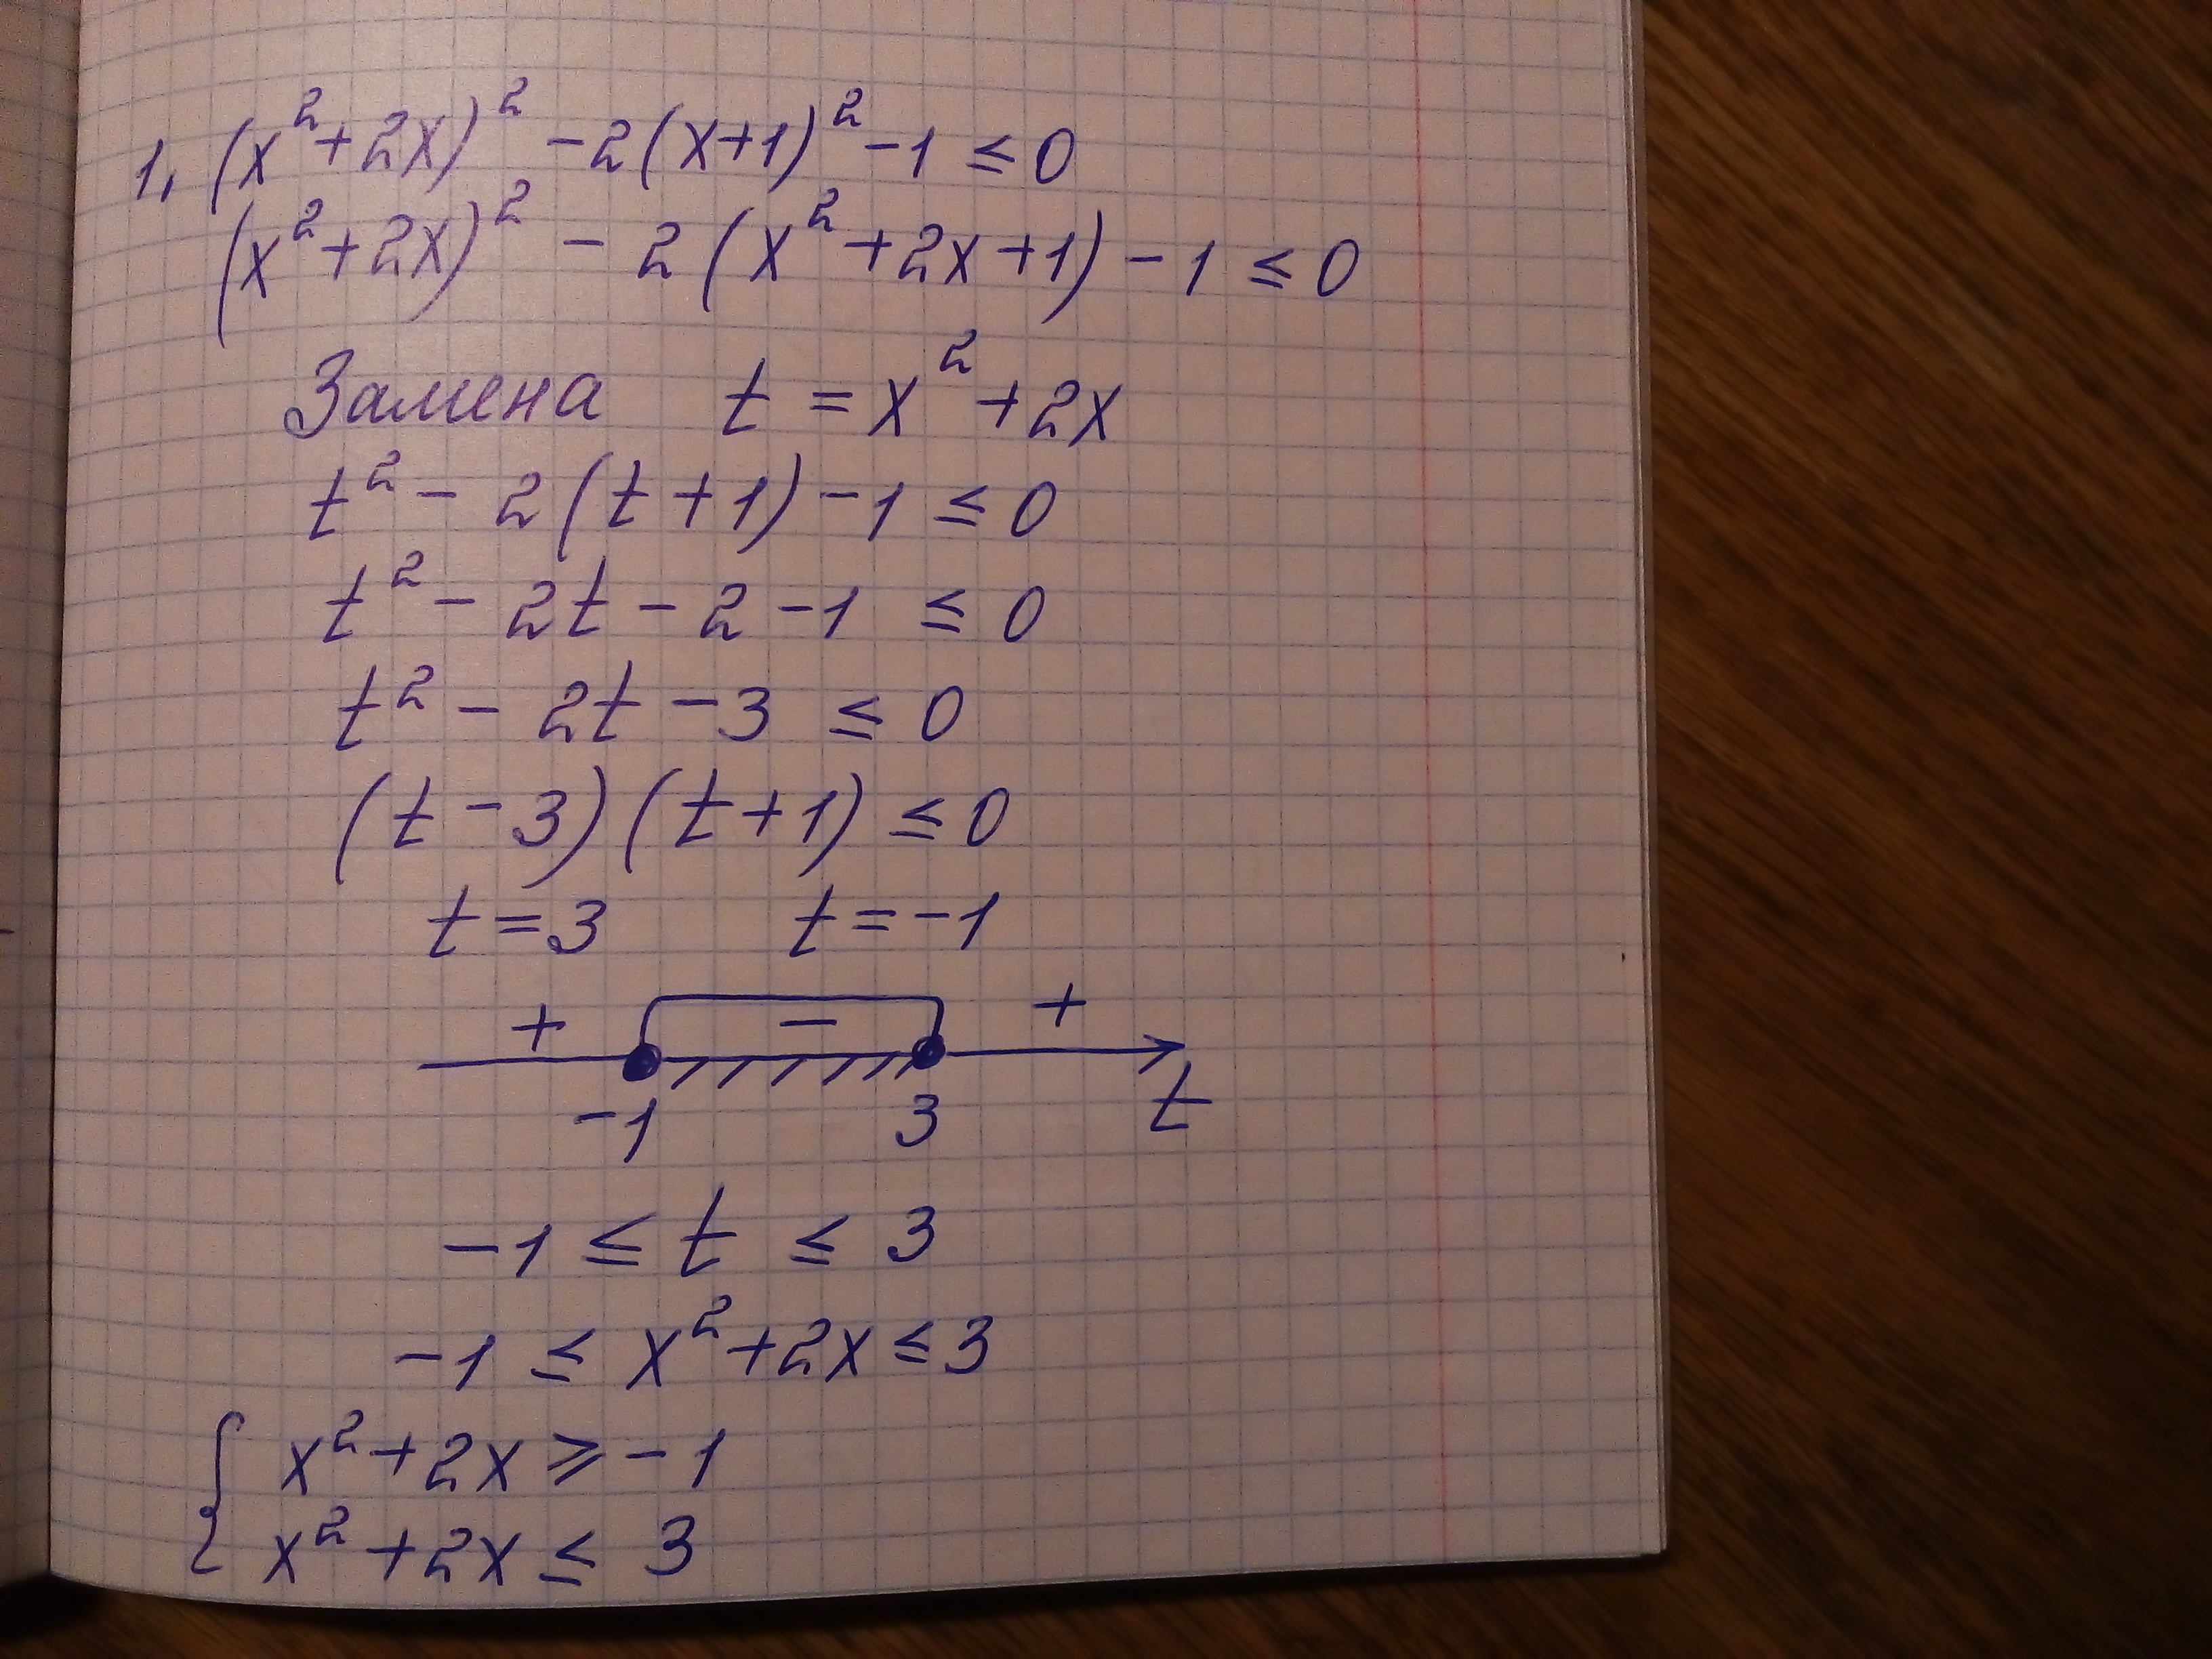 1. (x²+2x)² -2(x+1)² -1 ≤ 0
(x²+2x)² - 2(x²+2x+1) -1 ≤ 0
Замена t = x²+2x
t² - 2(t+1) -1 ≤ 0
t² - 2t - 2 -1 ≤ 0
t² - 2t -3 ≤ 0
(t-3)(t+1) ≤ 0
t=3 t=-1
+ - +
-1 3 t
-1 ≤ t ≤ 3
-1 ≤ x²+2x ≤ 3
{ x²+2x ⩾ -1
x²+2x ≤ 3